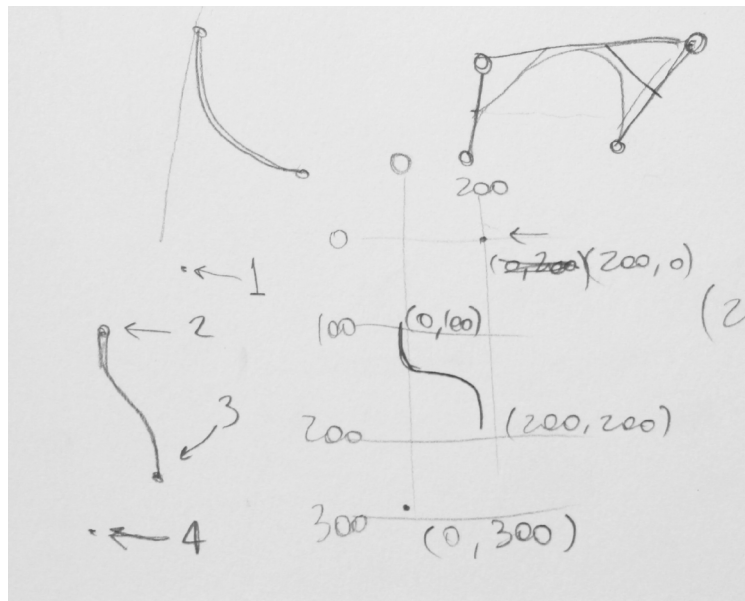 200
0
(0,200)(200,0)
1
100
(0,100)
2
3
200
(200,200)
4
300
(0,300)